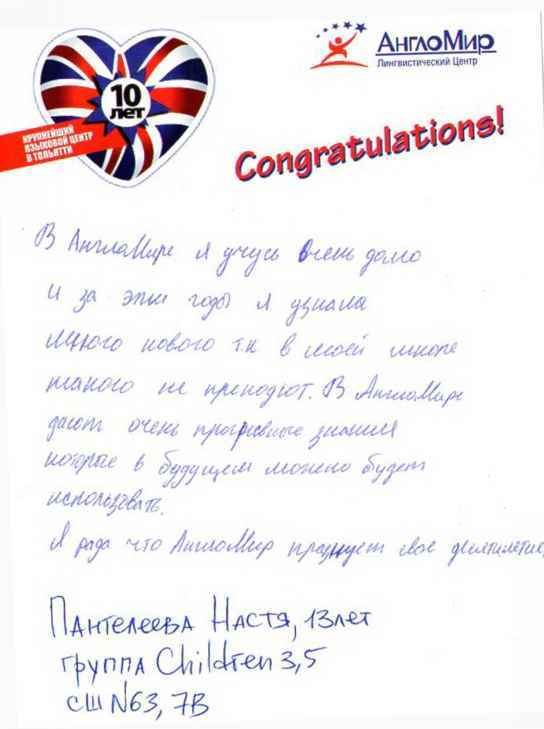 10
лет
КРУПНЕЙШИЙ
ЯЗЫКОВОЙ ЦЕНТР
В ТОЛЬЯТТИ
АнглоМир
Лингвистический Центр
Congratulations!
В АнглоМире я учусь очень долго
и за эти годы я узнала
много нового т.к в моей школе
такого не преподют. В АнглоМире
дают очень знания
которые в будущем можно будет
использовать.
Я рада что АнглоМир празнует свое десятилетие,
Пантелеева Настя, 13 лет
группа Children 3,5
СШ N63, 7В